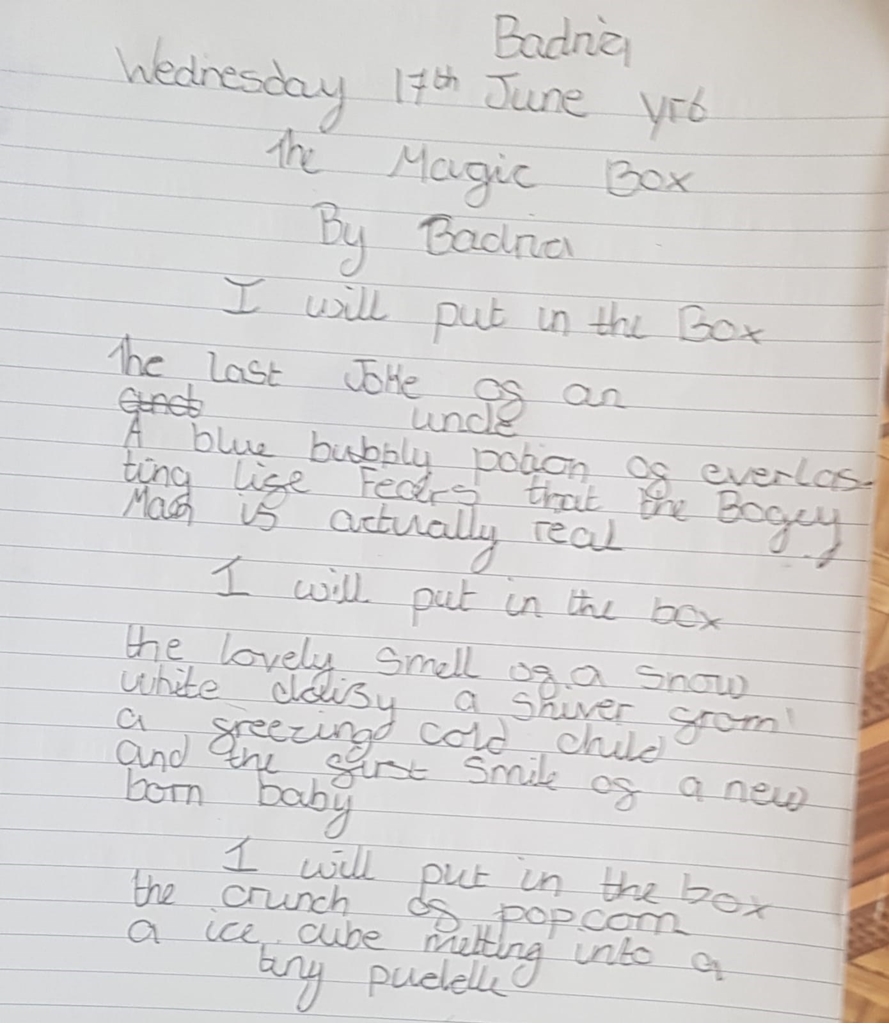 Badria
Wednesday 17th June yr6
The Magic Box
By Badria
I will put in the Box
The last Joke of an
uncle
A blue bubbly potion of everlas-
ting life Fears that the Bogey
Man is actually real
I will put in the box
the lovely smell of a snow
white daisy a shiver from
a freezing cold child
and the first smile of a new
born baby
I will put in the box
the crunch of popcorn
a ice cube melting into a
tiny puddle